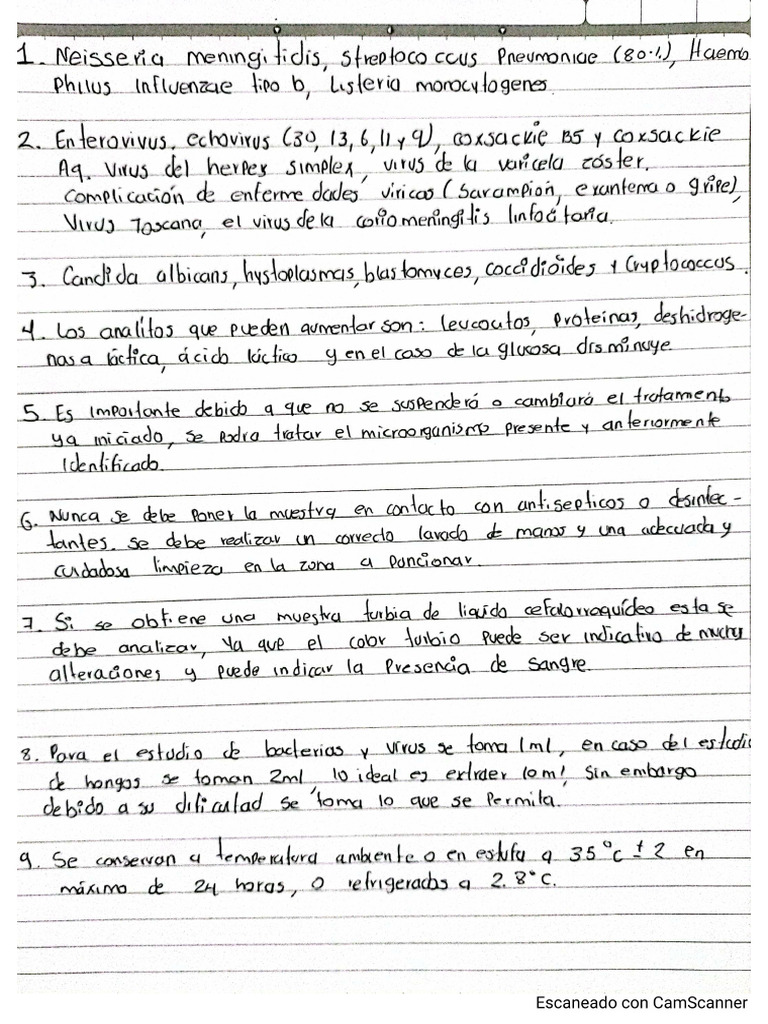 1. Neisseria meningitidis, streptococcus Pneumoniae (80%), Haemo
Philus Influenzae tipo b, Listeria monocytogenes
2. Enterovivus, echovirus (30, 13, 6, 11 y 9), coxsackie B5 y coxsackie
A9. Virus del herpex simplex, virus de la varicela zóster,
complicación de enfermedades viricas (Sarampión, exantema o gripe),
Virus Toscana, el virus de la coriomeningitis linfocitaria.
3. Candida albicans, hystoplasmas, blastomyces, coccidioides y Cryptococcus.
4. Los analitos que pueden aumentar son: leucocitos, Proteinas, deshidroge-
nasa láctica, ácido láctico y en el caso de la glucosa disminuye
5. Es importante debido a que no se suspenderá o cambiará el tratamento
ya iniciado, se podra tratar el microorganismo presente y anteriormente
Identificado.
6. Nunca se debe poner la muestra en contacto con antisepticos o desinfec-
tantes. se debe realizar un correcto lavado de manos y una adecuada y
cuidadosa limpieza en la zona a puncionar.
7. Si se obtiene una muestra turbia de liquido cefalorraquídeo esta se
debe analizar, Ya que el color turbio puede ser indicativo de muchas
alteraciones y puede indicar la Presencia de sangre
8. Para el estudio de bacterias y virus se toma 1ml, en caso del estudio
de hongos se toman 2ml, lo ideal es extraer 10ml, sin embargo
debido a su dificulad se toma lo que se permita.
9. Se conservan a temperatura ambiente o en estufa a 35°c ± 2 en
máximo de 24 horas, o refrigerados a 2.8°C.
Escaneado con CamScanner